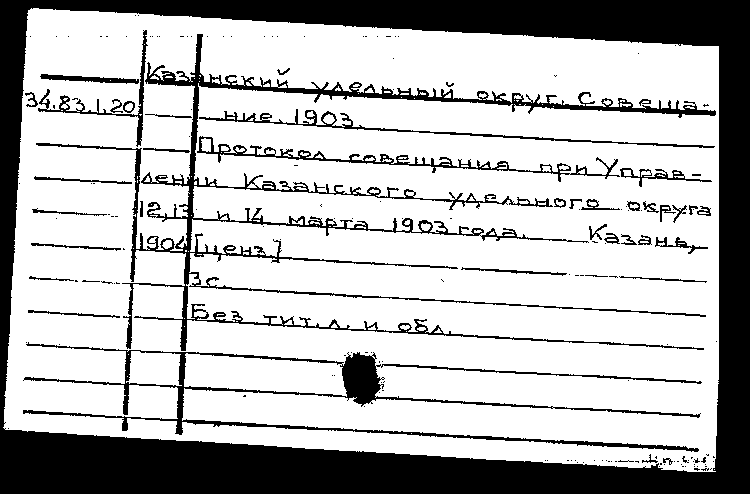 Казанский удельный округ. Совеща-
34.83.1.20 ние. 1903.
Протокол совещания при Управ-
лении Казанского удельного округа
12,13 и 14 марта 1903 года. Казань,
1904 [ценз.]
3с.
Без тит. л. и обл.